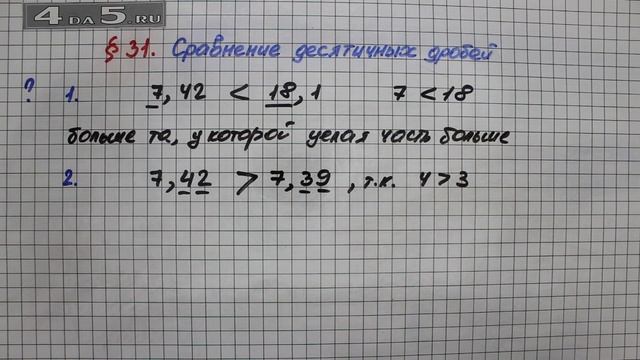 4 DA 5.RU
§ 31. Сравнение десятичных дробей
? 1. 7,42 < 18,1 7 < 18
больше та, у которой целая часть больше
2. 7,42 > 7,39 , т.к. 4 > 3